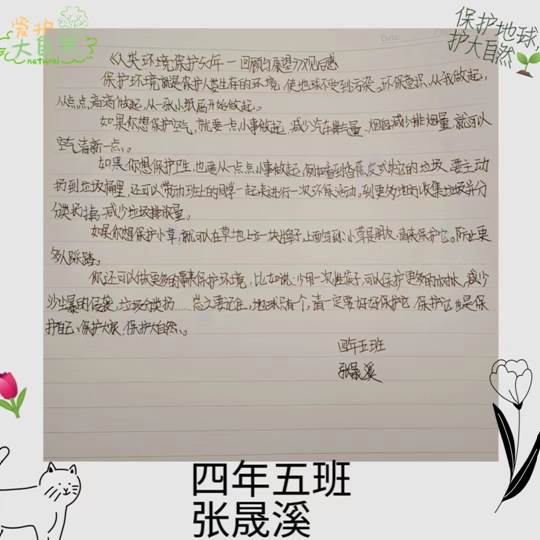 爱护
大自然
natural
保护地球,
护大自然
《人类环境保护50年—回顾与展望》观后感
保护环境就是保护人类生存的环境,使地球不受到污染。环保意识,从我做起,
从点点滴滴做起,从一张小纸屑开始做起。
如果你想保护空气,就要一点小事做起,减少汽车尾气量、烟囱减少排烟量,就可以
空气清新一点。
如果你想保护卫生,也要从一点点小事做起,例如看到香蕉皮或其它的垃圾,要主动
扔到垃圾桶里,还可以带动班上的同学一起来进行一次环保活动。
分类 减少垃圾排放量。
如果你想保护小草,就可以在草地上立一块牌子,上面写到:小草是朋友,请来保护它。防止更
多人踩踏。
你还可以做更多的事来保护环境,比如说:少用一次性筷子,可以保护更多的树木,减少
沙尘暴的侵袭,垃圾分类扔……总之要记住,地球只有一个,请一定要好好保护它,保护它也是保
护自己、保护大家、保护大自然。
四年五班
张晟溪
四年五班
张晟溪